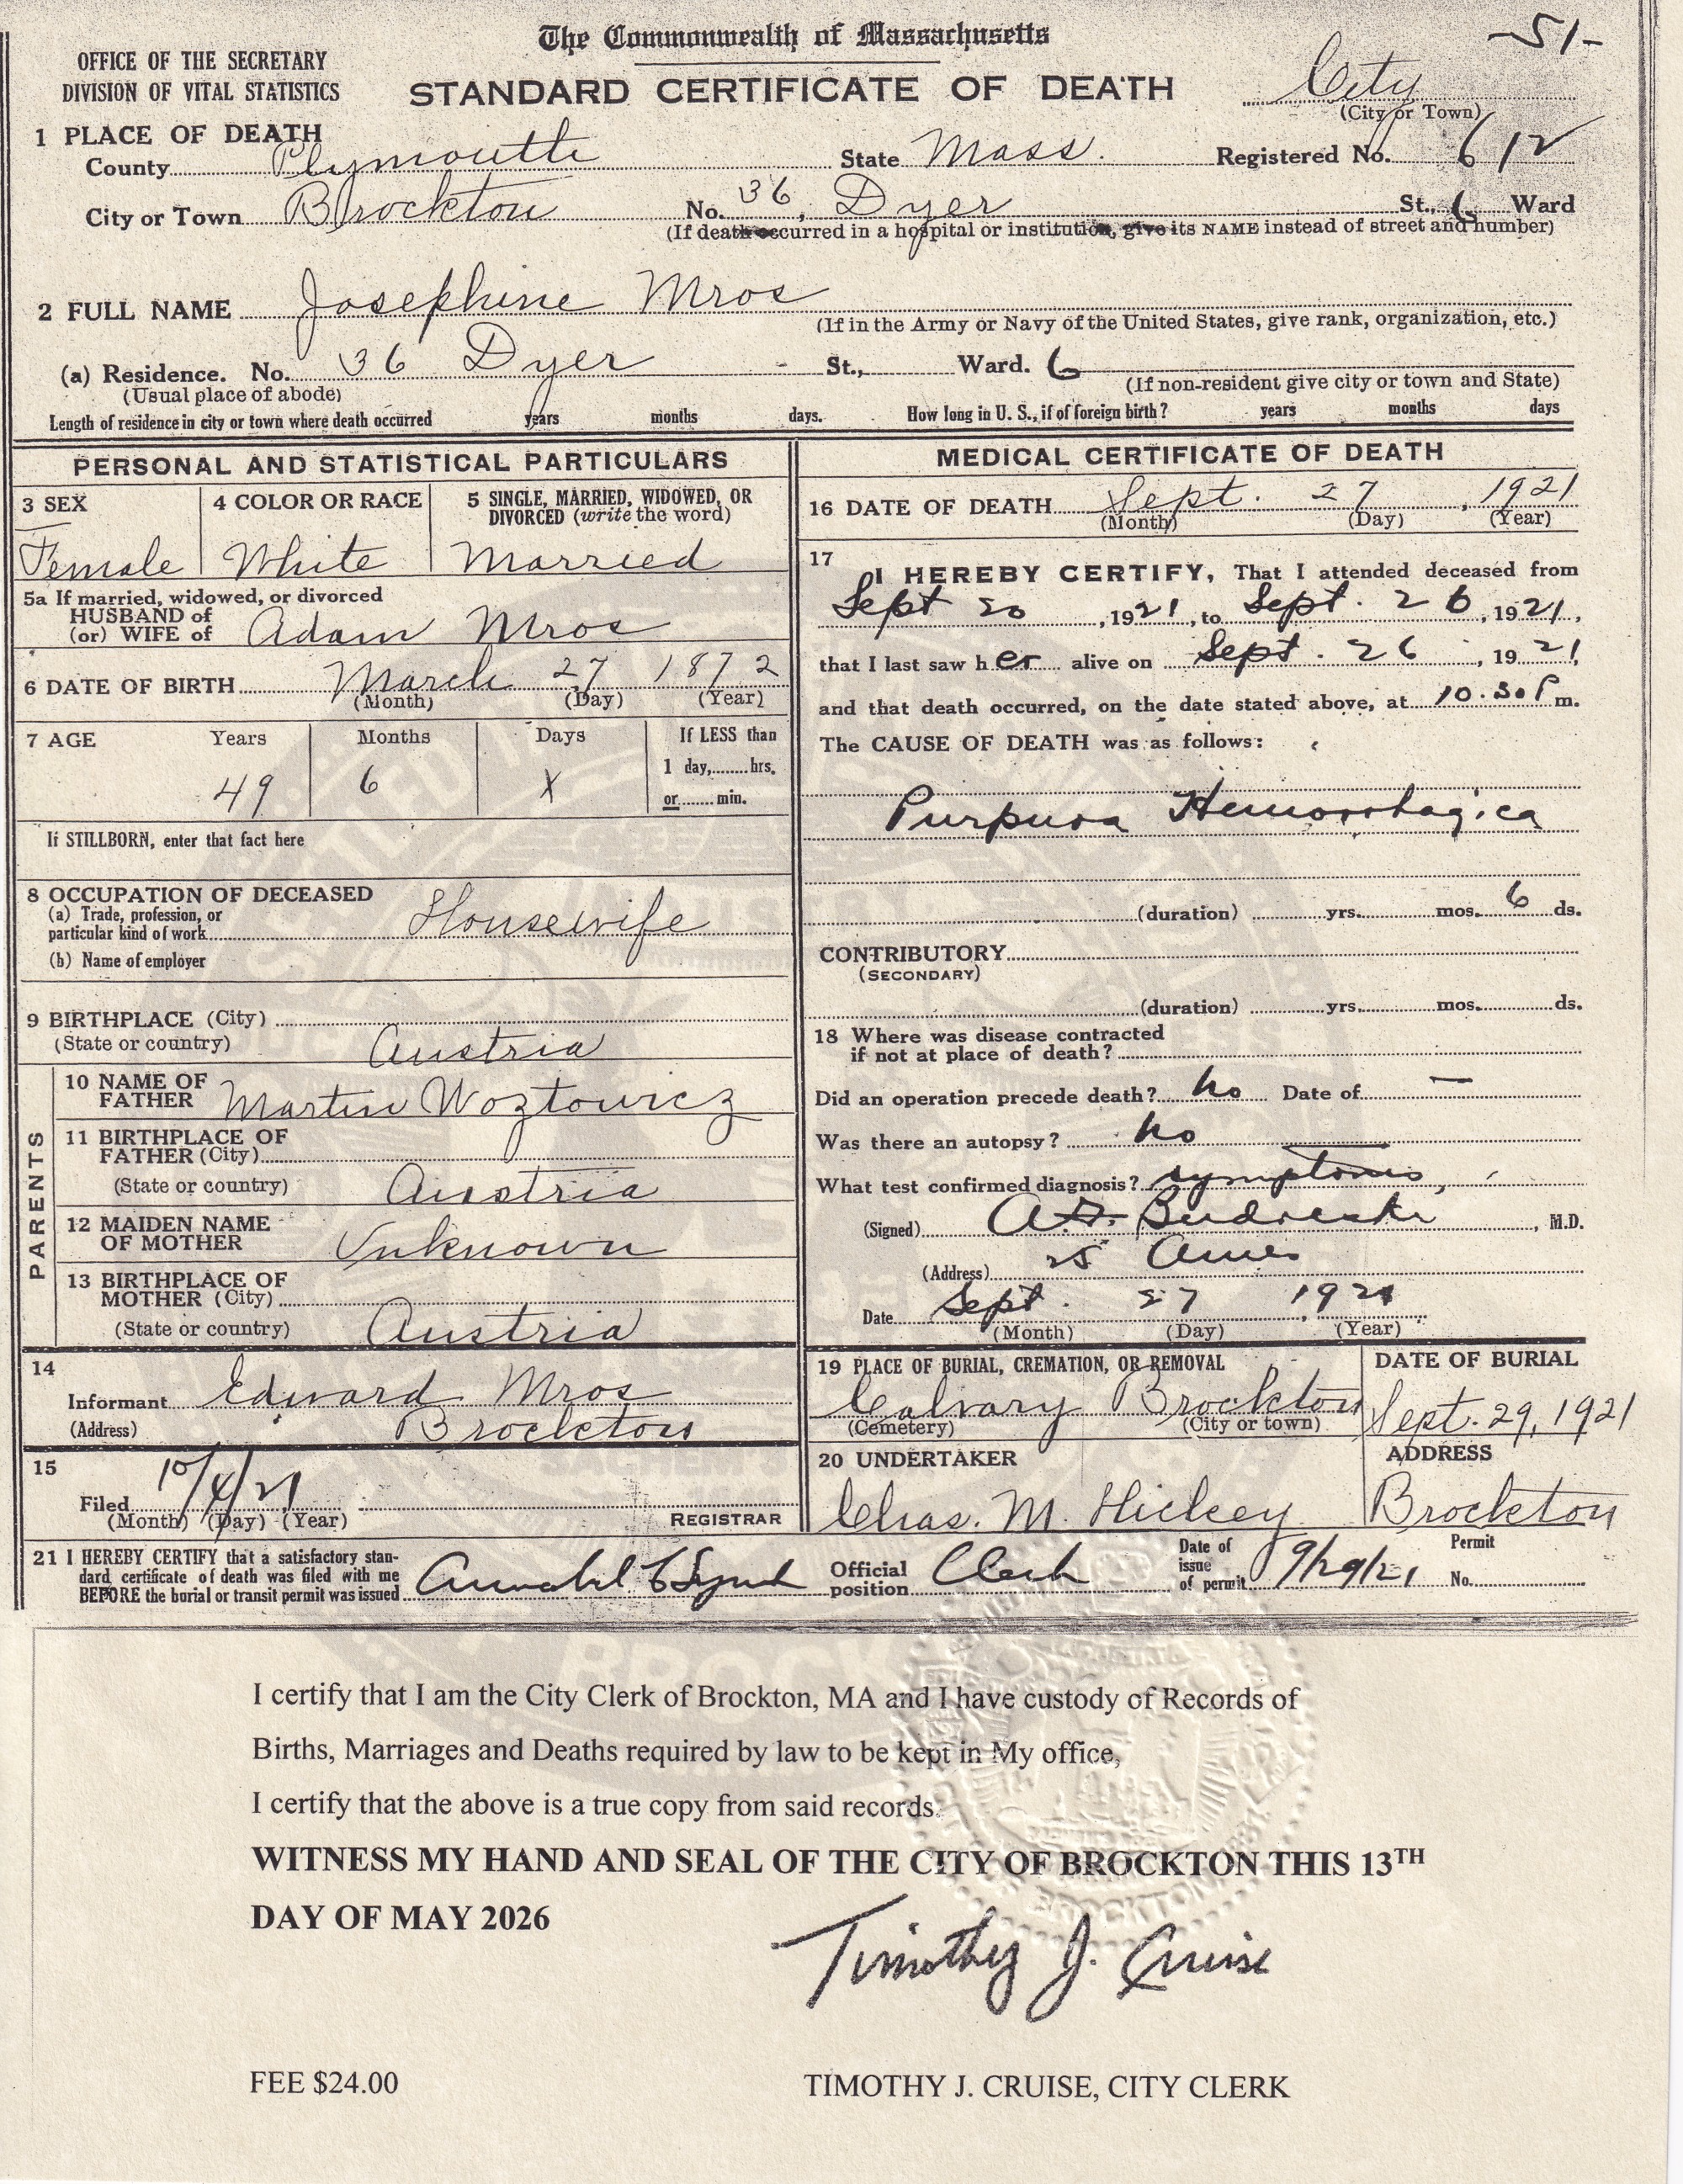 -51-
The Commonwealth of Massachusetts
OFFICE OF THE SECRETARY
DIVISION OF VITAL STATISTICS
STANDARD CERTIFICATE OF DEATH
City
(City or Town)
1 PLACE OF DEATH
County Plymouth State Mass. Registered No. 612
City or Town Brockton No. 36, Dyer St., 6 Ward
(If death occurred in a hospital or institution, give its NAME instead of street and number)
2 FULL NAME Josephine Mros
(If in the Army or Navy of the United States, give rank, organization, etc.)
(a) Residence. No. 36 Dyer St., Ward. 6
(Usual place of abode) (If non-resident give city or town and State)
Length of residence in city or town where death occurred years months days. How long in U. S., if of foreign birth? years months days
PERSONAL AND STATISTICAL PARTICULARS
3 SEX 4 COLOR OR RACE 5 SINGLE, MARRIED, WIDOWED, OR
DIVORCED (write the word)
Female White Married
5a If married, widowed, or divorced
HUSBAND of
(or) WIFE of Adam Mros
6 DATE OF BIRTH March 27 1872
(Month) (Day) (Year)
7 AGE Years Months Days If LESS than
1 day, hrs.
49 6 X or min.
If STILLBORN, enter that fact here
8 OCCUPATION OF DECEASED
(a) Trade, profession, or
particular kind of work Housewife
(b) Name of employer
9 BIRTHPLACE (City)
(State or country) Austria
PARENTS
10 NAME OF
FATHER Martin Woztowicz
11 BIRTHPLACE OF
FATHER (City)
(State or country) Austria
12 MAIDEN NAME
OF MOTHER Unknown
13 BIRTHPLACE OF
MOTHER (City)
(State or country) Austria
14
Informant Edward Mros
(Address) Brockton
15
Filed 10/4/21
(Month) (Day) (Year) REGISTRAR
MEDICAL CERTIFICATE OF DEATH
16 DATE OF DEATH Sept. 27, 1921
(Month) (Day) (Year)
17
I HEREBY CERTIFY, That I attended deceased from
Sept 20, 1921, to Sept. 26, 1921,
that I last saw her alive on Sept. 26, 1921,
and that death occurred, on the date stated above, at 10.30 P m.
The CAUSE OF DEATH was as follows:
Purpura Hemorrhagica
(duration) yrs. mos. 6 ds.
CONTRIBUTORY
(SECONDARY)
(duration) yrs. mos. ds.
18 Where was disease contracted
if not at place of death?
Did an operation precede death? no Date of —
Was there an autopsy? no
What test confirmed diagnosis? symptoms,
(Signed) A. , M.D.
(Address) 25 Ames
Date Sept. 27, 1921
(Month) (Day) (Year)
19 PLACE OF BURIAL, CREMATION, OR REMOVAL DATE OF BURIAL
Calvary Brockton Sept. 29, 1921
(Cemetery) (City or town)
20 UNDERTAKER ADDRESS
Chas. M. Hickey Brockton
21 I HEREBY CERTIFY that a satisfactory stan-
dard certificate of death was filed with me
BEFORE the burial or transit permit was issued
Official
position Clerk
Date of
issue
of permit 9/29/21
Permit
No.
I certify that I am the City Clerk of Brockton, MA and I have custody of Records of
Births, Marriages and Deaths required by law to be kept in My office,
I certify that the above is a true copy from said records.
WITNESS MY HAND AND SEAL OF THE CITY OF BROCKTON THIS 13TH
DAY OF MAY 2026
Timothy J. Cruise
FEE $24.00 TIMOTHY J. CRUISE, CITY CLERK